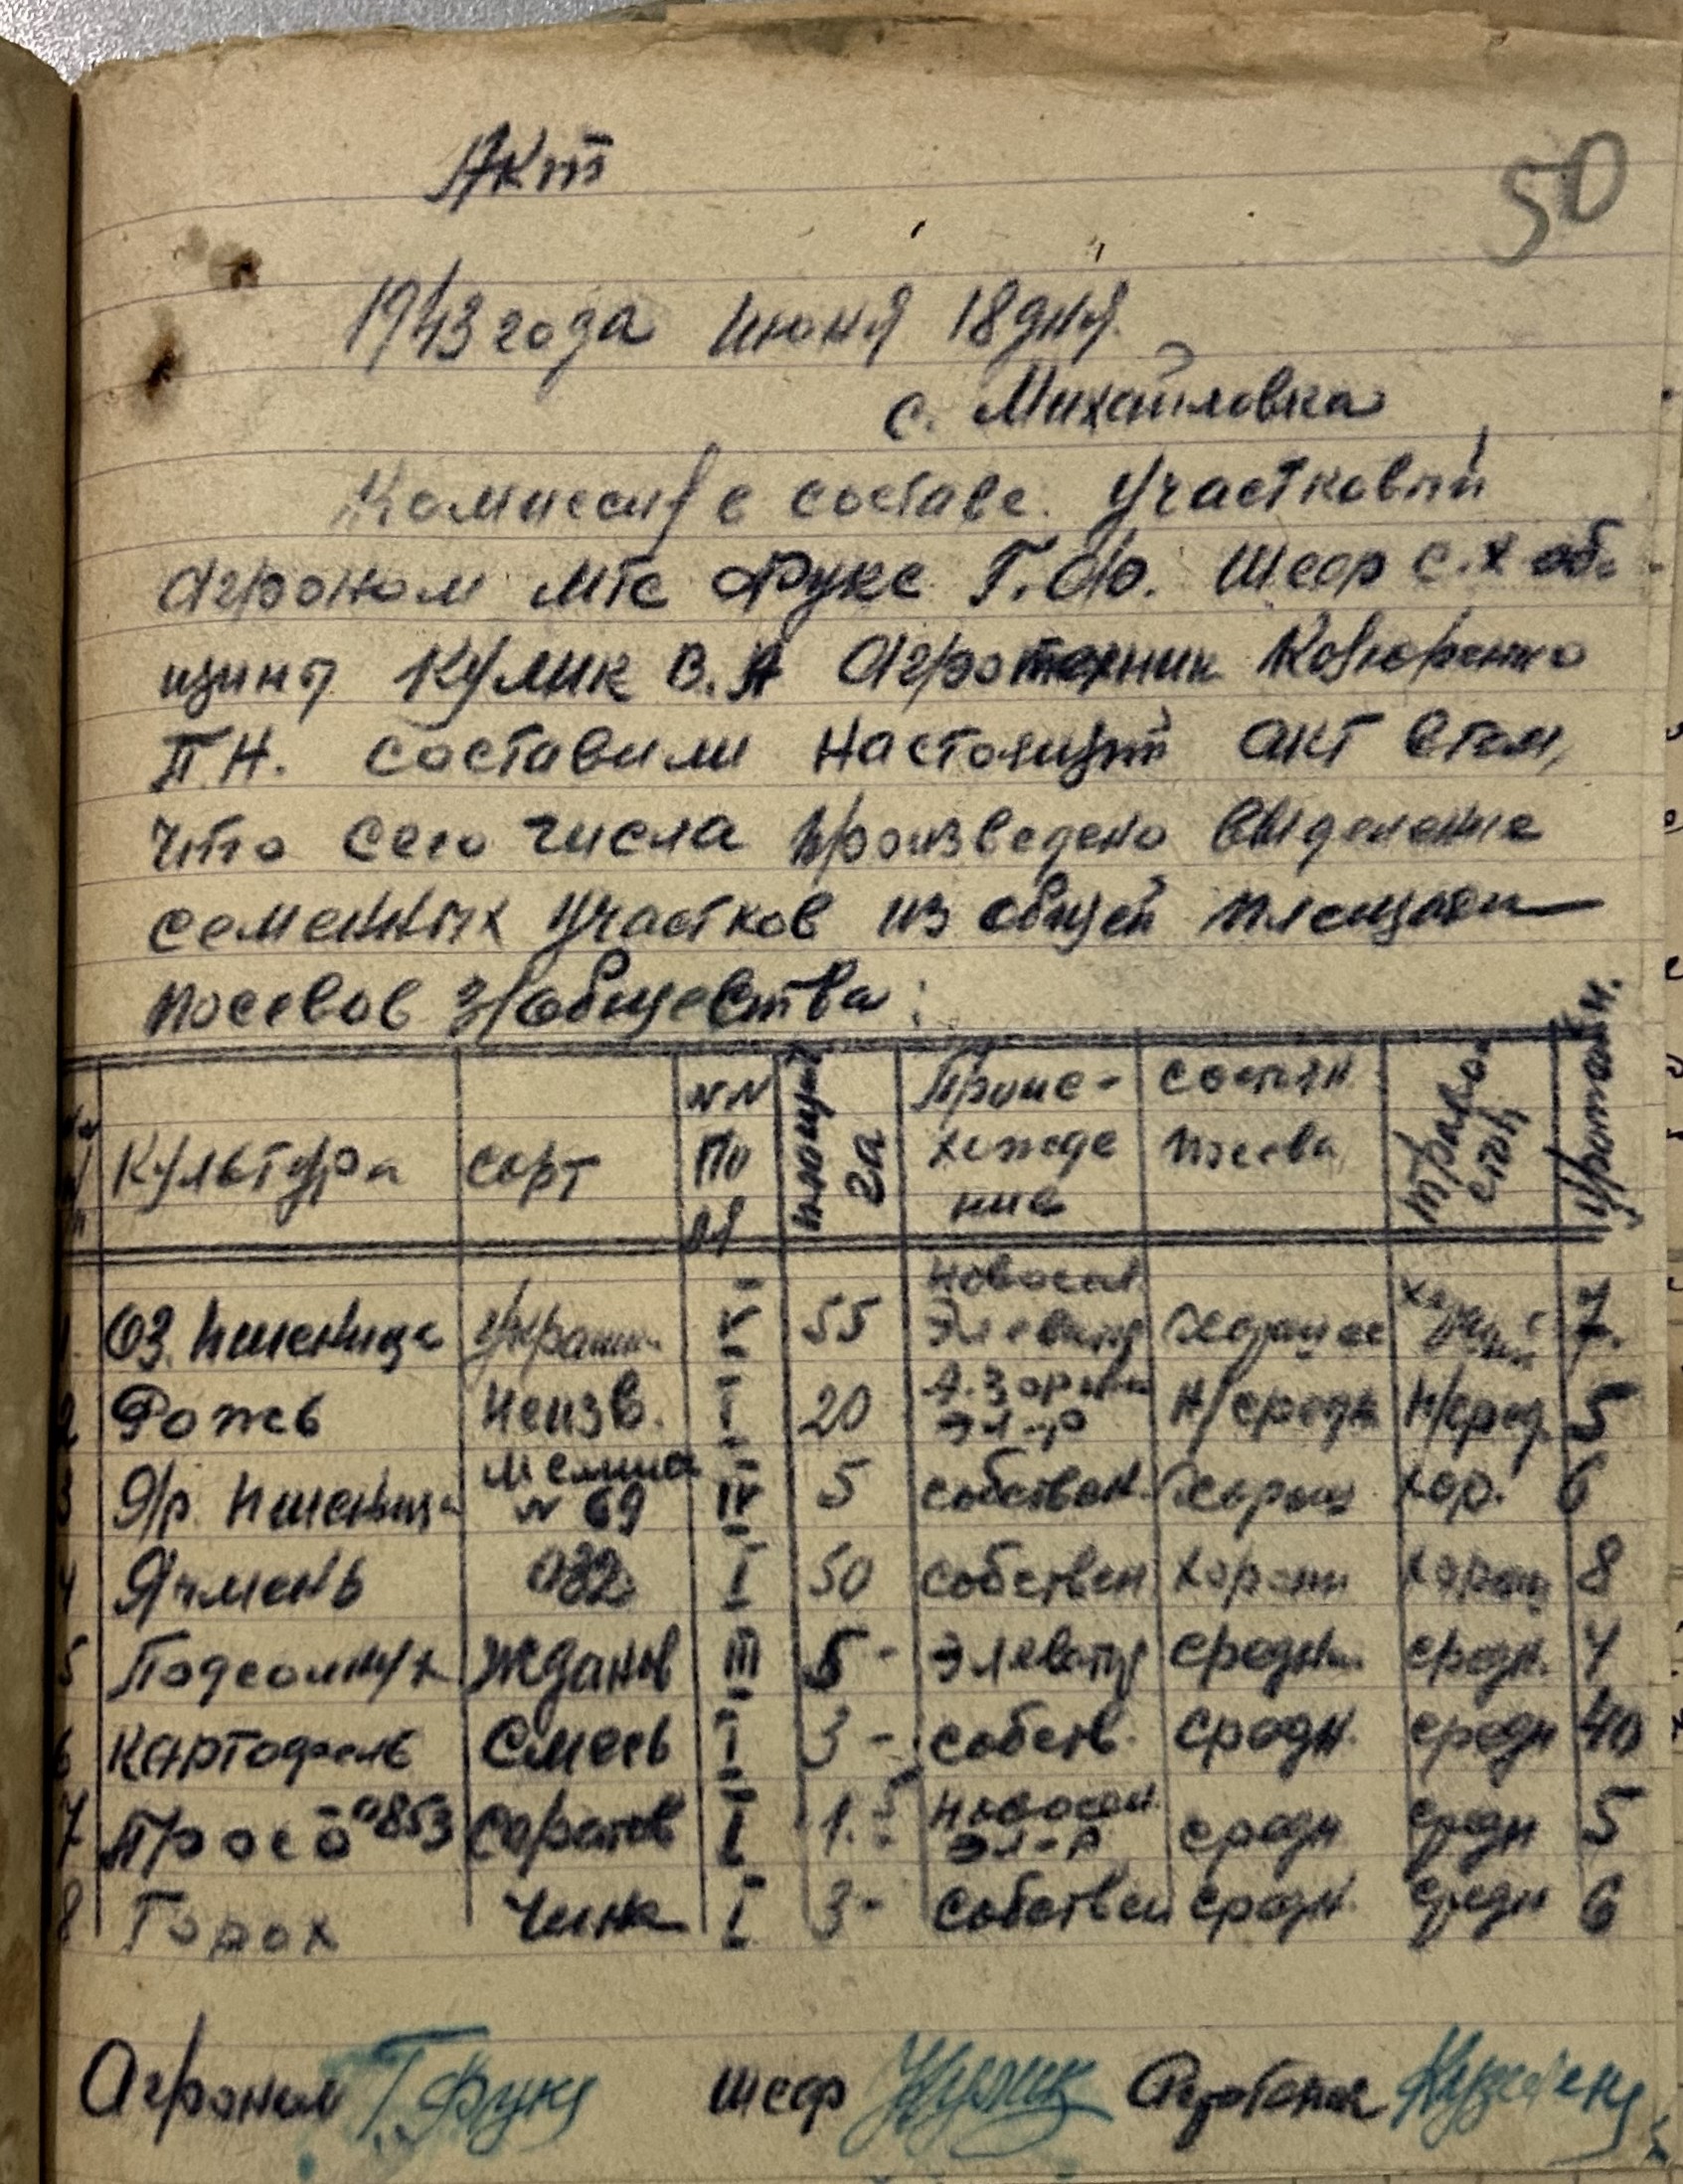 Акт
50
1943 года июня 18 дня.
с. Михайловка
Комиссия в составе. Участковый
Агроном мтс Фукс Г.Ю. Шеф с.х об-
щины Кулик В.А Агротехник
П.Н. составили настоящий акт в том,
что сего числа произведено выделение
семенных участков из общей площади
посевов з/общества:
Культура сорт NN По ля площадь га Проис-хожде ние состоян посева траво стоя урожайн.
1. Оз. пшеница Украин. V 55 Новосел. Элеватор Хорошее 7.
2 Рожь Неизв. I 20 эл-р Н/средн Н/сред. 5
3 Яр. пшеница N 69 IV 5 собствен. Хорош хор. 6
4 Ячмень 032 I 50 собствен хорош хорош 8
5 Подсолнух Жданов III 5- Элеватор средн. средн. 4
6 Картофель Смесь I 3- собств. средн. средн 40
7 Просо - 0853 Саратов I 1.5 эл-р средн средн 5
8 Горох Чина I 3- собствен средн. средн 6
Агроном Г. Фукс шеф Кулик Агротехник